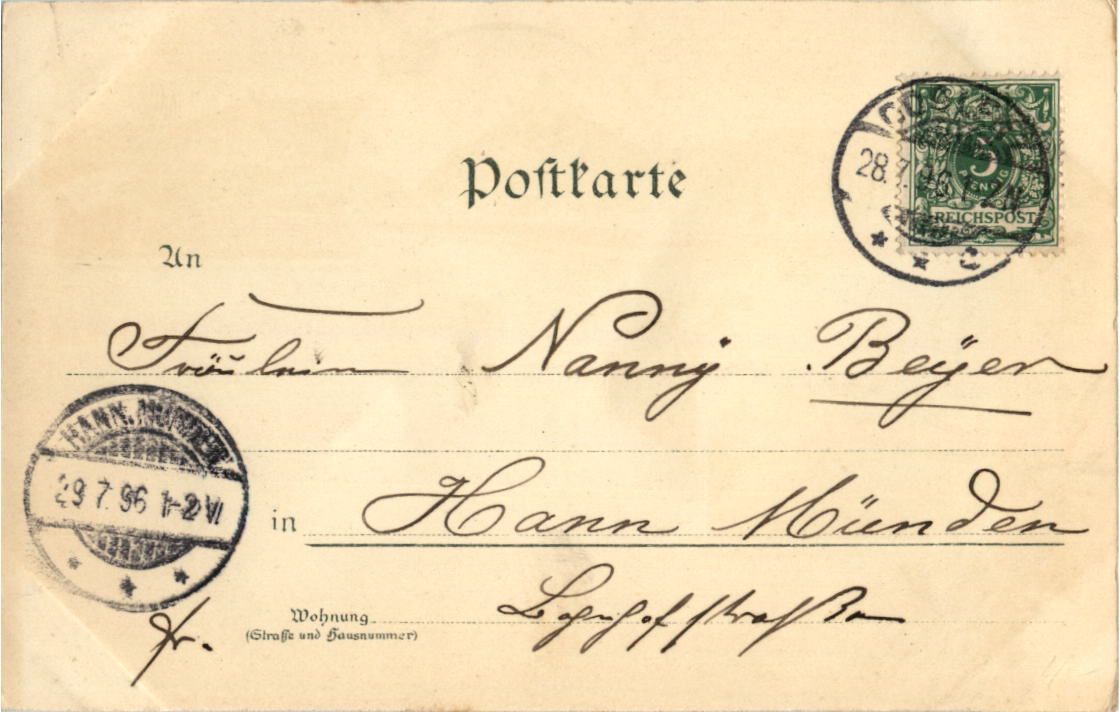 Postkarte
5
PFENNIG
REICHSPOST
28.7.96 1-2 N
An
Fräulein Nanny Beyer
HANN. MÜNDEN
29.7.96 1-2 N
in Hann Münden
Wohnung Bahnhofstraße
(Straße und Hausnummer)
fr.